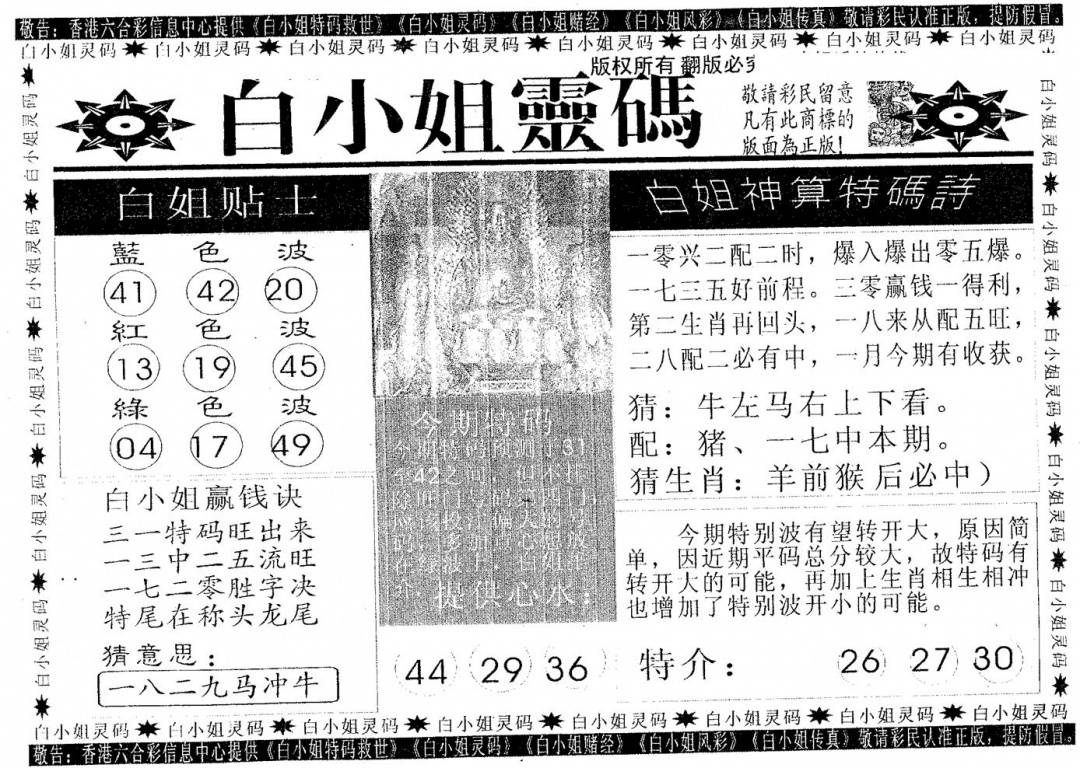 敬告：香港六合彩信息中心提供《白小姐特码救世》《白小姐灵码》《白小姐赌经》《白小姐风彩》《白小姐传真》敬请彩民认准正版，提防假冒。
白小姐灵码 白小姐灵码 白小姐灵码 白小姐灵码 白小姐灵码 白小姐灵码 白小姐灵码 白小姐灵码
版权所有 翻版必究
白小姐靈碼
敬請彩民留意
凡有此商標的
版面為正版!
白姐贴士
藍色波
41 42 20
紅色波
13 19 45
綠色波
04 17 49
白小姐赢钱诀
三一特码旺出来
一三中二五流旺
一七二零胜字决
特尾在称头龙尾
猜意思：
一八二九马冲牛
今期特码
提供心水：
44 29 36
白姐神算特碼詩
一零兴二配二时，爆入爆出零五爆。
一七三五好前程。三零赢钱一得利，
第二生肖再回头，一八来从配五旺，
二八配二必有中，一月今期有收获。
猜：牛左马右上下看。
配：猪、一七中本期。
猜生肖：羊前猴后必中）
今期特别波有望转开大，原因简
单，因近期平码总分较大，故特码有
转开大的可能，再加上生肖相生相冲
也增加了特别波开小的可能。
特介： 26 27 30
白小姐灵码 白小姐灵码 白小姐灵码 白小姐灵码 白小姐灵码 白小姐灵码 白小姐灵码 白小姐灵码
敬告：香港六合彩信息中心提供《白小姐特码救世》《白小姐灵码》《白小姐赌经》《白小姐风彩》《白小姐传真》敬请彩民认准正版，提防假冒。
白小姐灵码 白小姐灵码 白小姐灵码 白小姐灵码 白小姐灵码
白小姐灵码 白小姐灵码 白小姐灵码 白小姐灵码 白小姐灵码